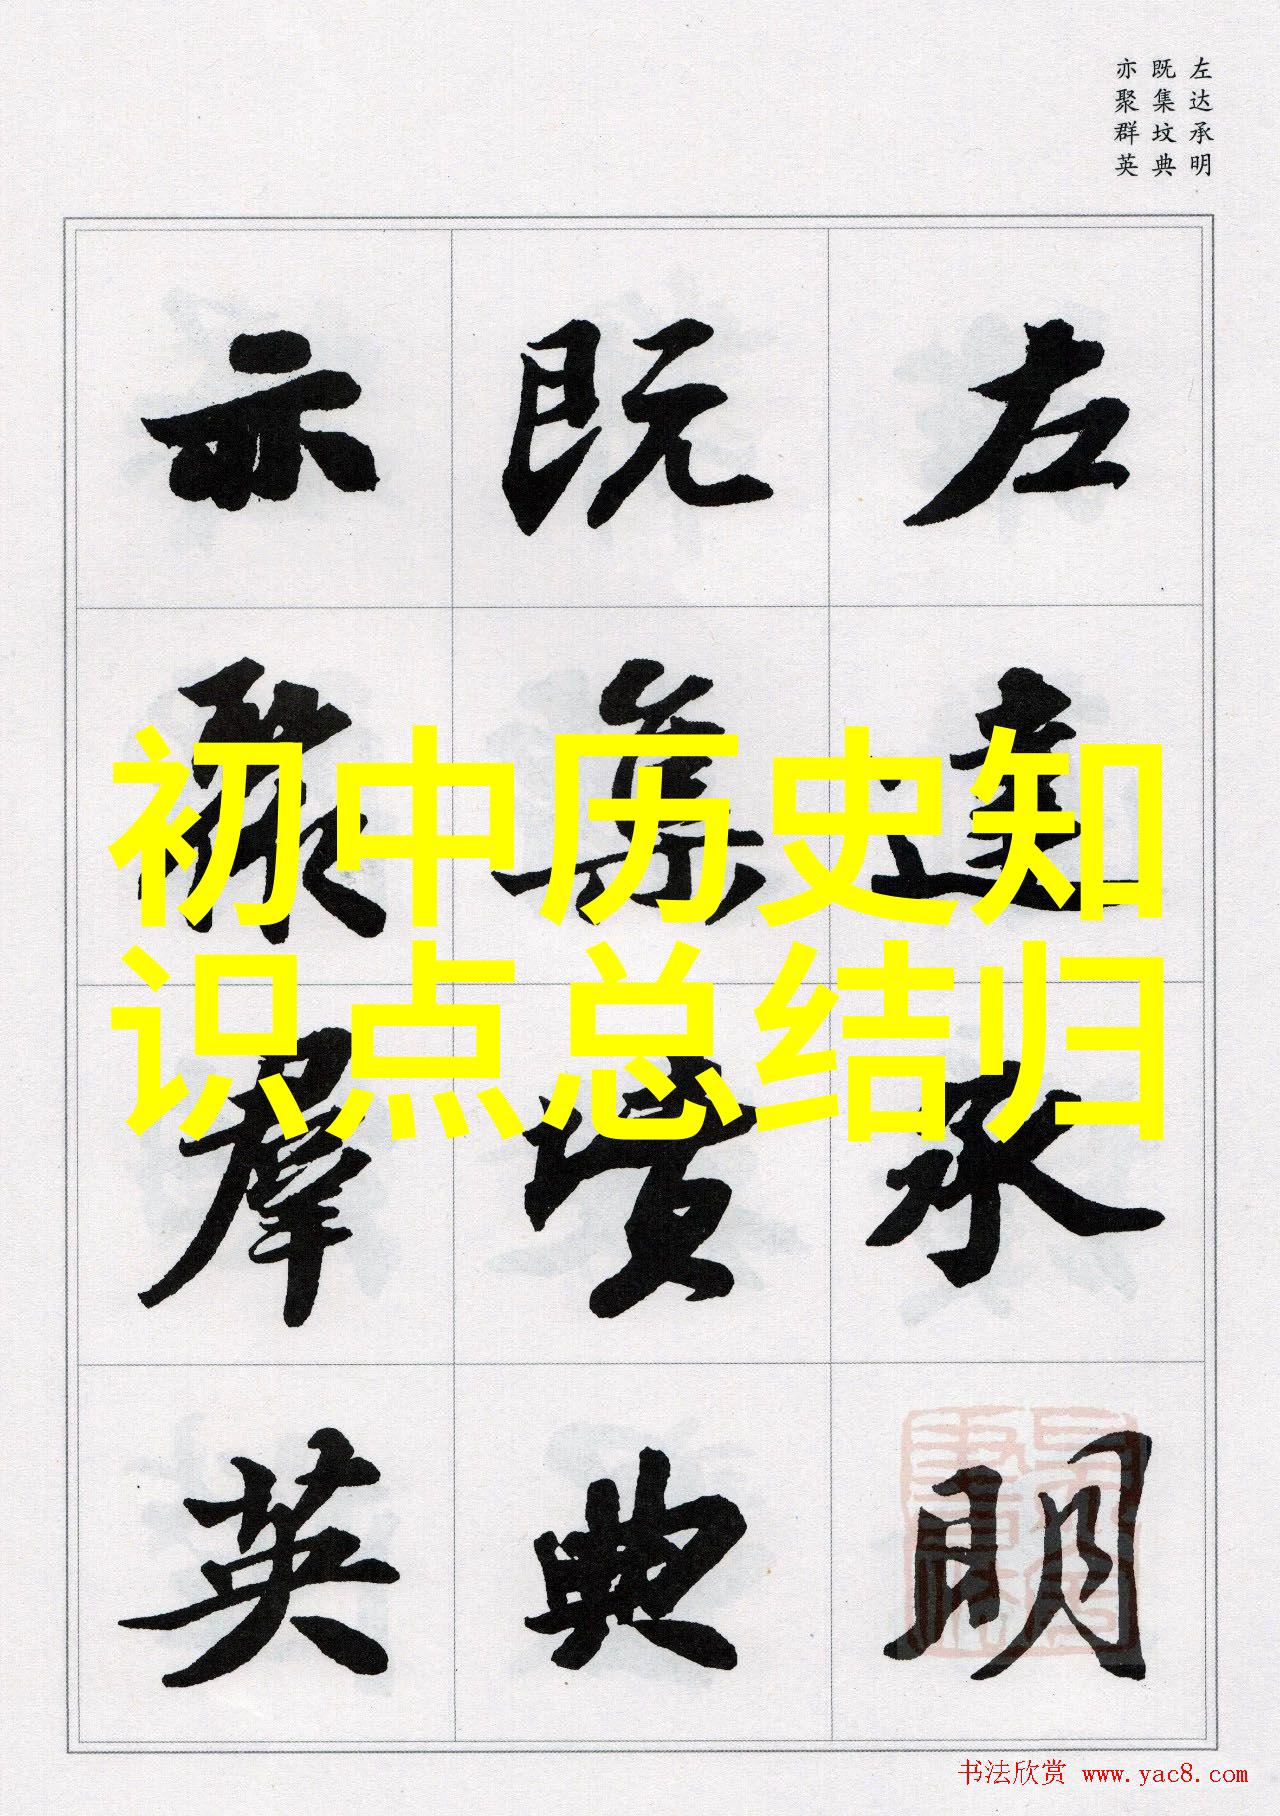 左达承明
既集坟典
亦聚群英
左達承明
既集墳典
亦聚群英
初中历史知
识点总结归
书法欣赏 www.yac8.com